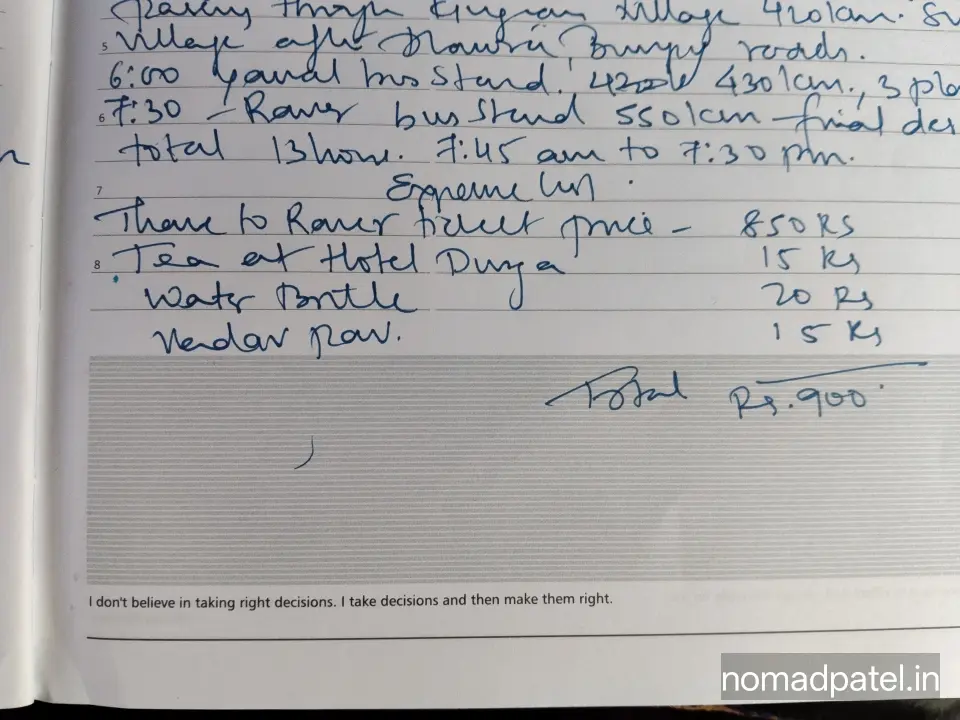 passing through village 420 km. Su
5 village after bumpy roads.
6:00 Yawal bus stand. 430 km, 3 pla
6 7:30 - Raver bus stand 550 km - final des
total 13 hours. 7:45 am to 7:30 pm.
7 Expense list.
Thane to Raver ticket price - 850 RS
8 Tea at Hotel Durga 15 Rs
Water Bottle 20 Rs
Vadav pav. 15 Rs
Total Rs. 900
I don't believe in taking right decisions. I take decisions and then make them right.
nomadpatel.in